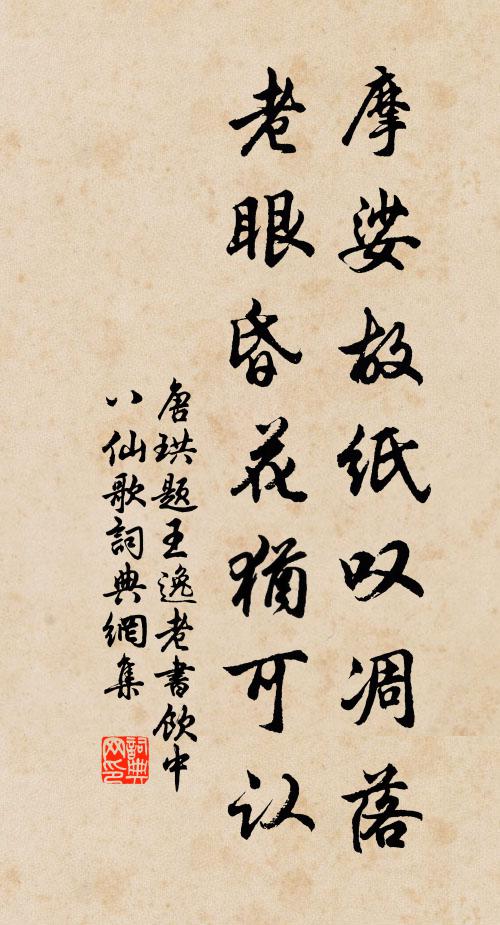 摩娑故纸叹凋落
老眼昏花犹可认
唐珙题王逸老书饮中
八仙歌詞典網集
詞典网印